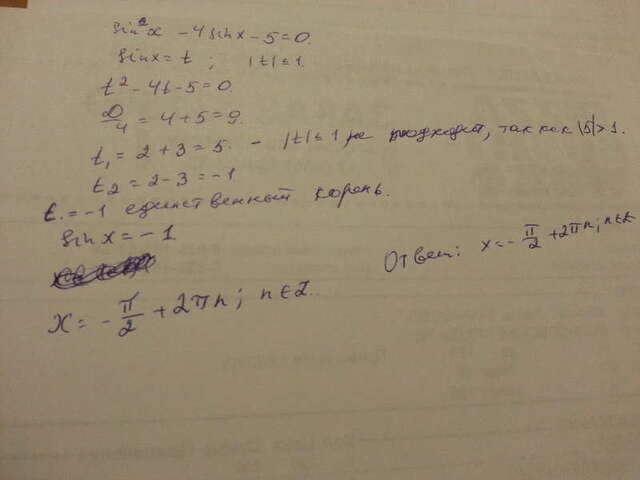 sin²x - 4sinx - 5 = 0.
sinx = t ; |t| ≤ 1.
t² - 4t - 5 = 0.
D/4 = 4 + 5 = 9.
t₁ = 2 + 3 = 5. - |t| ≤ 1 не подходит, так как |5| > 1.
t₂ = 2 - 3 = -1
t = -1 единственный корень.
sin x = -1
x = - π/2 + 2πn ; n ∈ Z.
Ответ: x = - π/2 + 2πn ; n ∈ Z